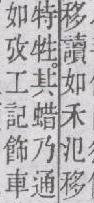 移讀如禾氾移
特牲。其蜡乃通
如攷工記飾車